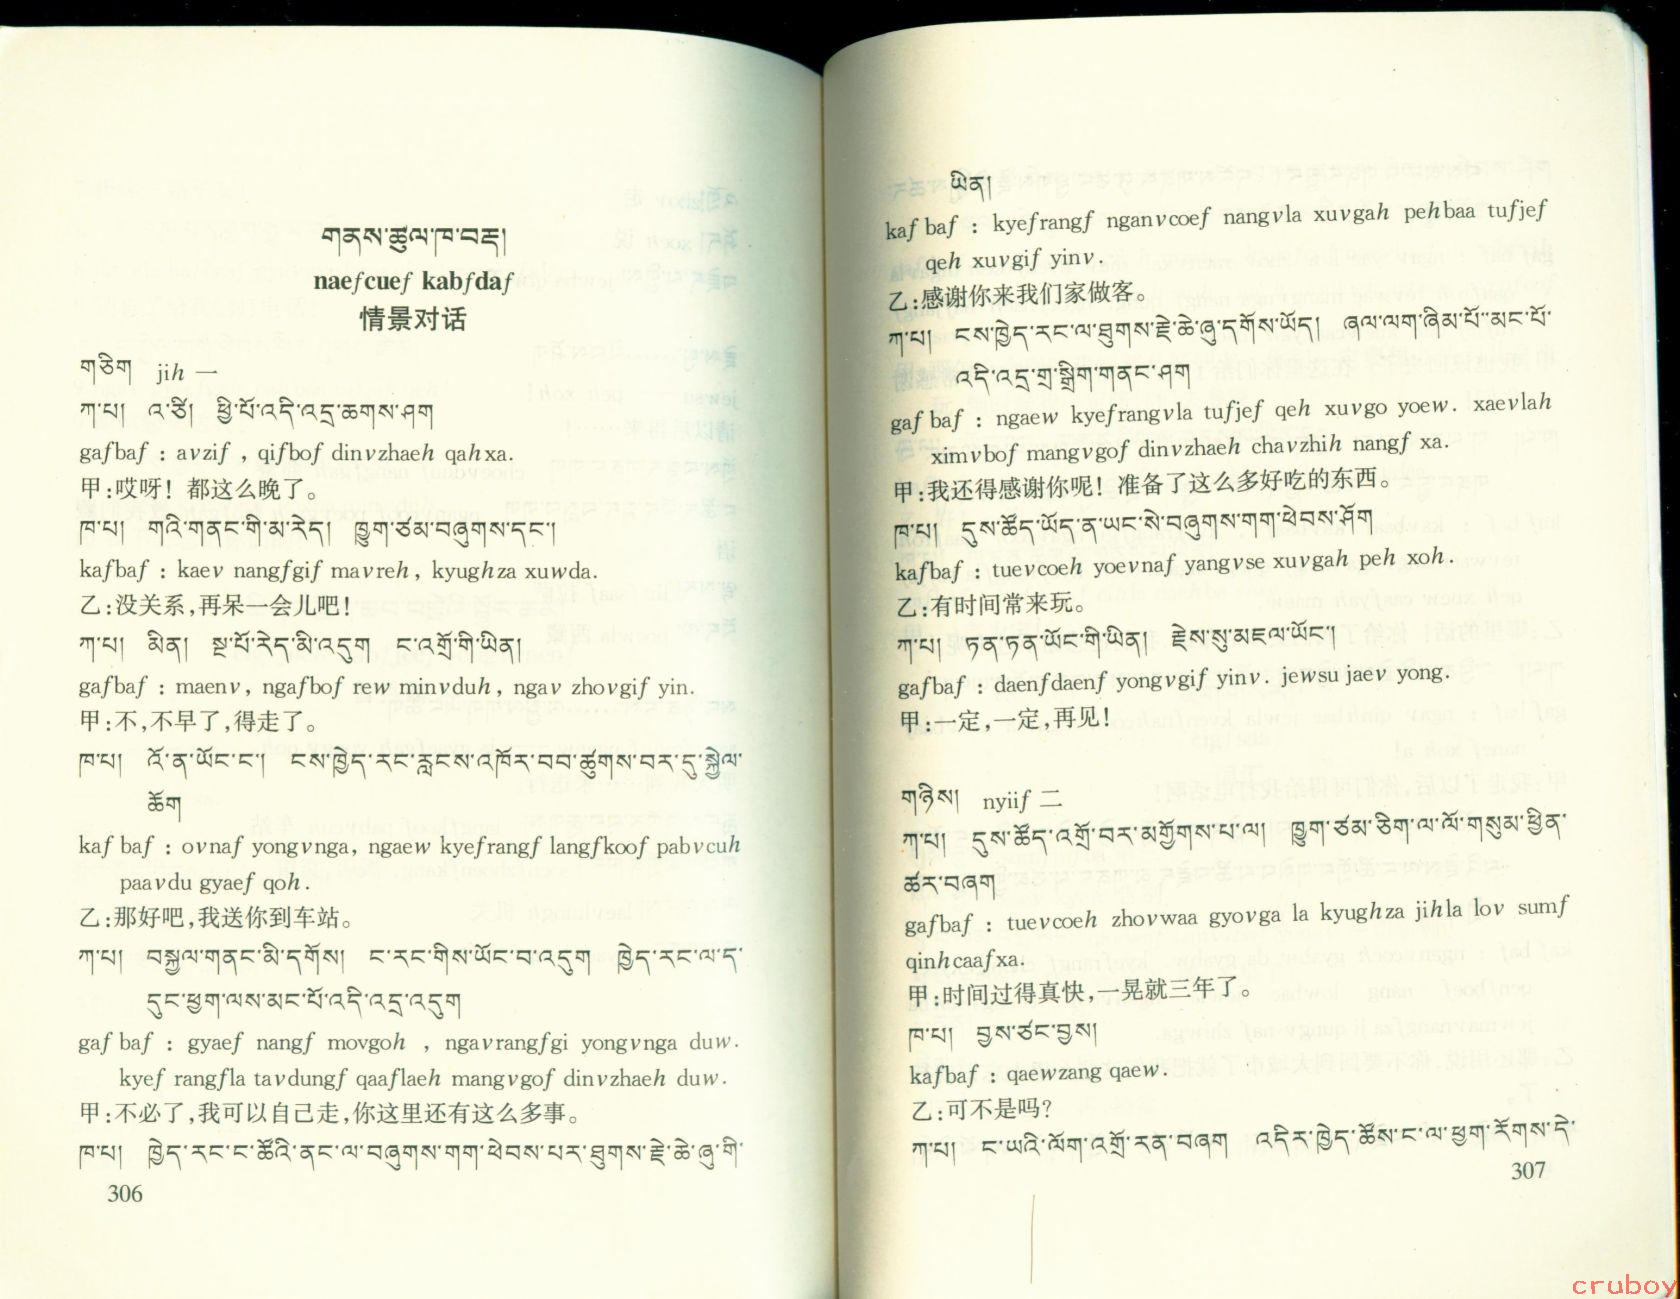 གནས་ཚུལ་ཁ་བརྡ།
naefcuef kabfdaf
情景对话
གཅིག jih 一
ཀ་པ། འ་ཙི། ཕྱི་པོ་འདི་འདྲ་ཆགས་ཤག
gafbaf : avzif , qifbof dinvzhaeh qahxa.
甲:哎呀！都这么晚了。
ཁ་པ། གའི་གནང་གི་མ་རེད། ཁྱུག་ཙམ་བཞུགས་དང་།
kafbaf : kaev nangfgif mavreh, kyughza xuwda.
乙:没关系,再呆一会儿吧！
ཀ་པ། མིན། སྔ་པོ་རེད་མི་འདུག ང་འགྲོ་གི་ཡིན།
gafbaf : maenv, ngafbof rew minvduh, ngav zhovgif yin.
甲:不,不早了,得走了。
ཁ་པ། འོ་ན་ཡོང་ང་། ངས་ཁྱེད་རང་རླངས་འཁོར་བབ་ཚུགས་བར་དུ་སྐྱེལ་
ཆོག
kaf baf : ovnaf yongvnga, ngaew kyefrangf langfkoof pabvcuh
paavdu gyaef qoh.
乙:那好吧,我送你到车站。
ཀ་པ། བསྐྱལ་གནང་མི་དགོས། ང་རང་གིས་ཡོང་བ་འདུག ཁྱེད་རང་ལ་ད་
དུང་ཕྱག་ལས་མང་པོ་འདི་འདྲ་འདུག
gaf baf : gyaef nangf movgoh , ngavrangfgi yongvnga duw.
kyef rangfla tavdungf qaaflaeh mangvgof dinvzhaeh duw.
甲:不必了,我可以自己走,你这里还有这么多事。
ཁ་པ། ཁྱེད་རང་ང་ཚོའི་ནང་ལ་བཞུགས་གག་ཕེབས་པར་ཐུགས་རྗེ་ཆེ་ཞུ་གི་
306
ཡིན།
kaf baf : kyefrangf nganvcoef nangvla xuvgah pehbaa tufjef
qeh xuvgif yinv.
乙:感谢你来我们家做客。
ཀ་པ། ངས་ཁྱེད་རང་ལ་ཐུགས་རྗེ་ཆེ་ཞུ་དགོས་ཡོད། ཞལ་ལག་ཞིམ་པོ་མང་པོ་
འདི་འདྲ་གྲ་སྒྲིག་གནང་ཤག
gaf baf : ngaew kyefrangvla tufjef qeh xuvgo yoew. xaevlah
ximvbof mangvgof dinvzhaeh chavzhih nangf xa.
甲:我还得感谢你呢！准备了这么多好吃的东西。
ཁ་པ། དུས་ཚོད་ཡོད་ན་ཡང་སེ་བཞུགས་གག་ཕེབས་ཤོག
kafbaf : tuevcoeh yoevnaf yangvse xuvgah peh xoh.
乙:有时间常来玩。
ཀ་པ། ཏན་ཏན་ཡོང་གི་ཡིན། རྗེས་སུ་མཇལ་ཡོང་།
gafbaf : daenfdaenf yongvgif yinv. jewsu jaev yong.
甲:一定,一定,再见！
གཉིས། nyiif 二
ཀ་པ། དུས་ཚོད་འགྲོ་བར་མགྱོགས་པ་ལ། ཁྱུག་ཙམ་ཅིག་ལ་ལོ་གསུམ་ཕྱིན་
ཚར་བཞག
gafbaf : tuevcoeh zhovwaa gyovga la kyughza jihla lov sumf
qinhcaafxa.
甲:时间过得真快,一晃就三年了。
ཁ་པ། བྱས་ཙང་བྱས།
kafbaf : qaewzang qaew.
乙:可不是吗?
ཀ་པ། ང་ཡའི་ལོག་འགྲོ་རན་བཞག འདིར་ཁྱེད་ཚོས་ང་ལ་ཕྱག་རོགས་དེ་
307
cruboy